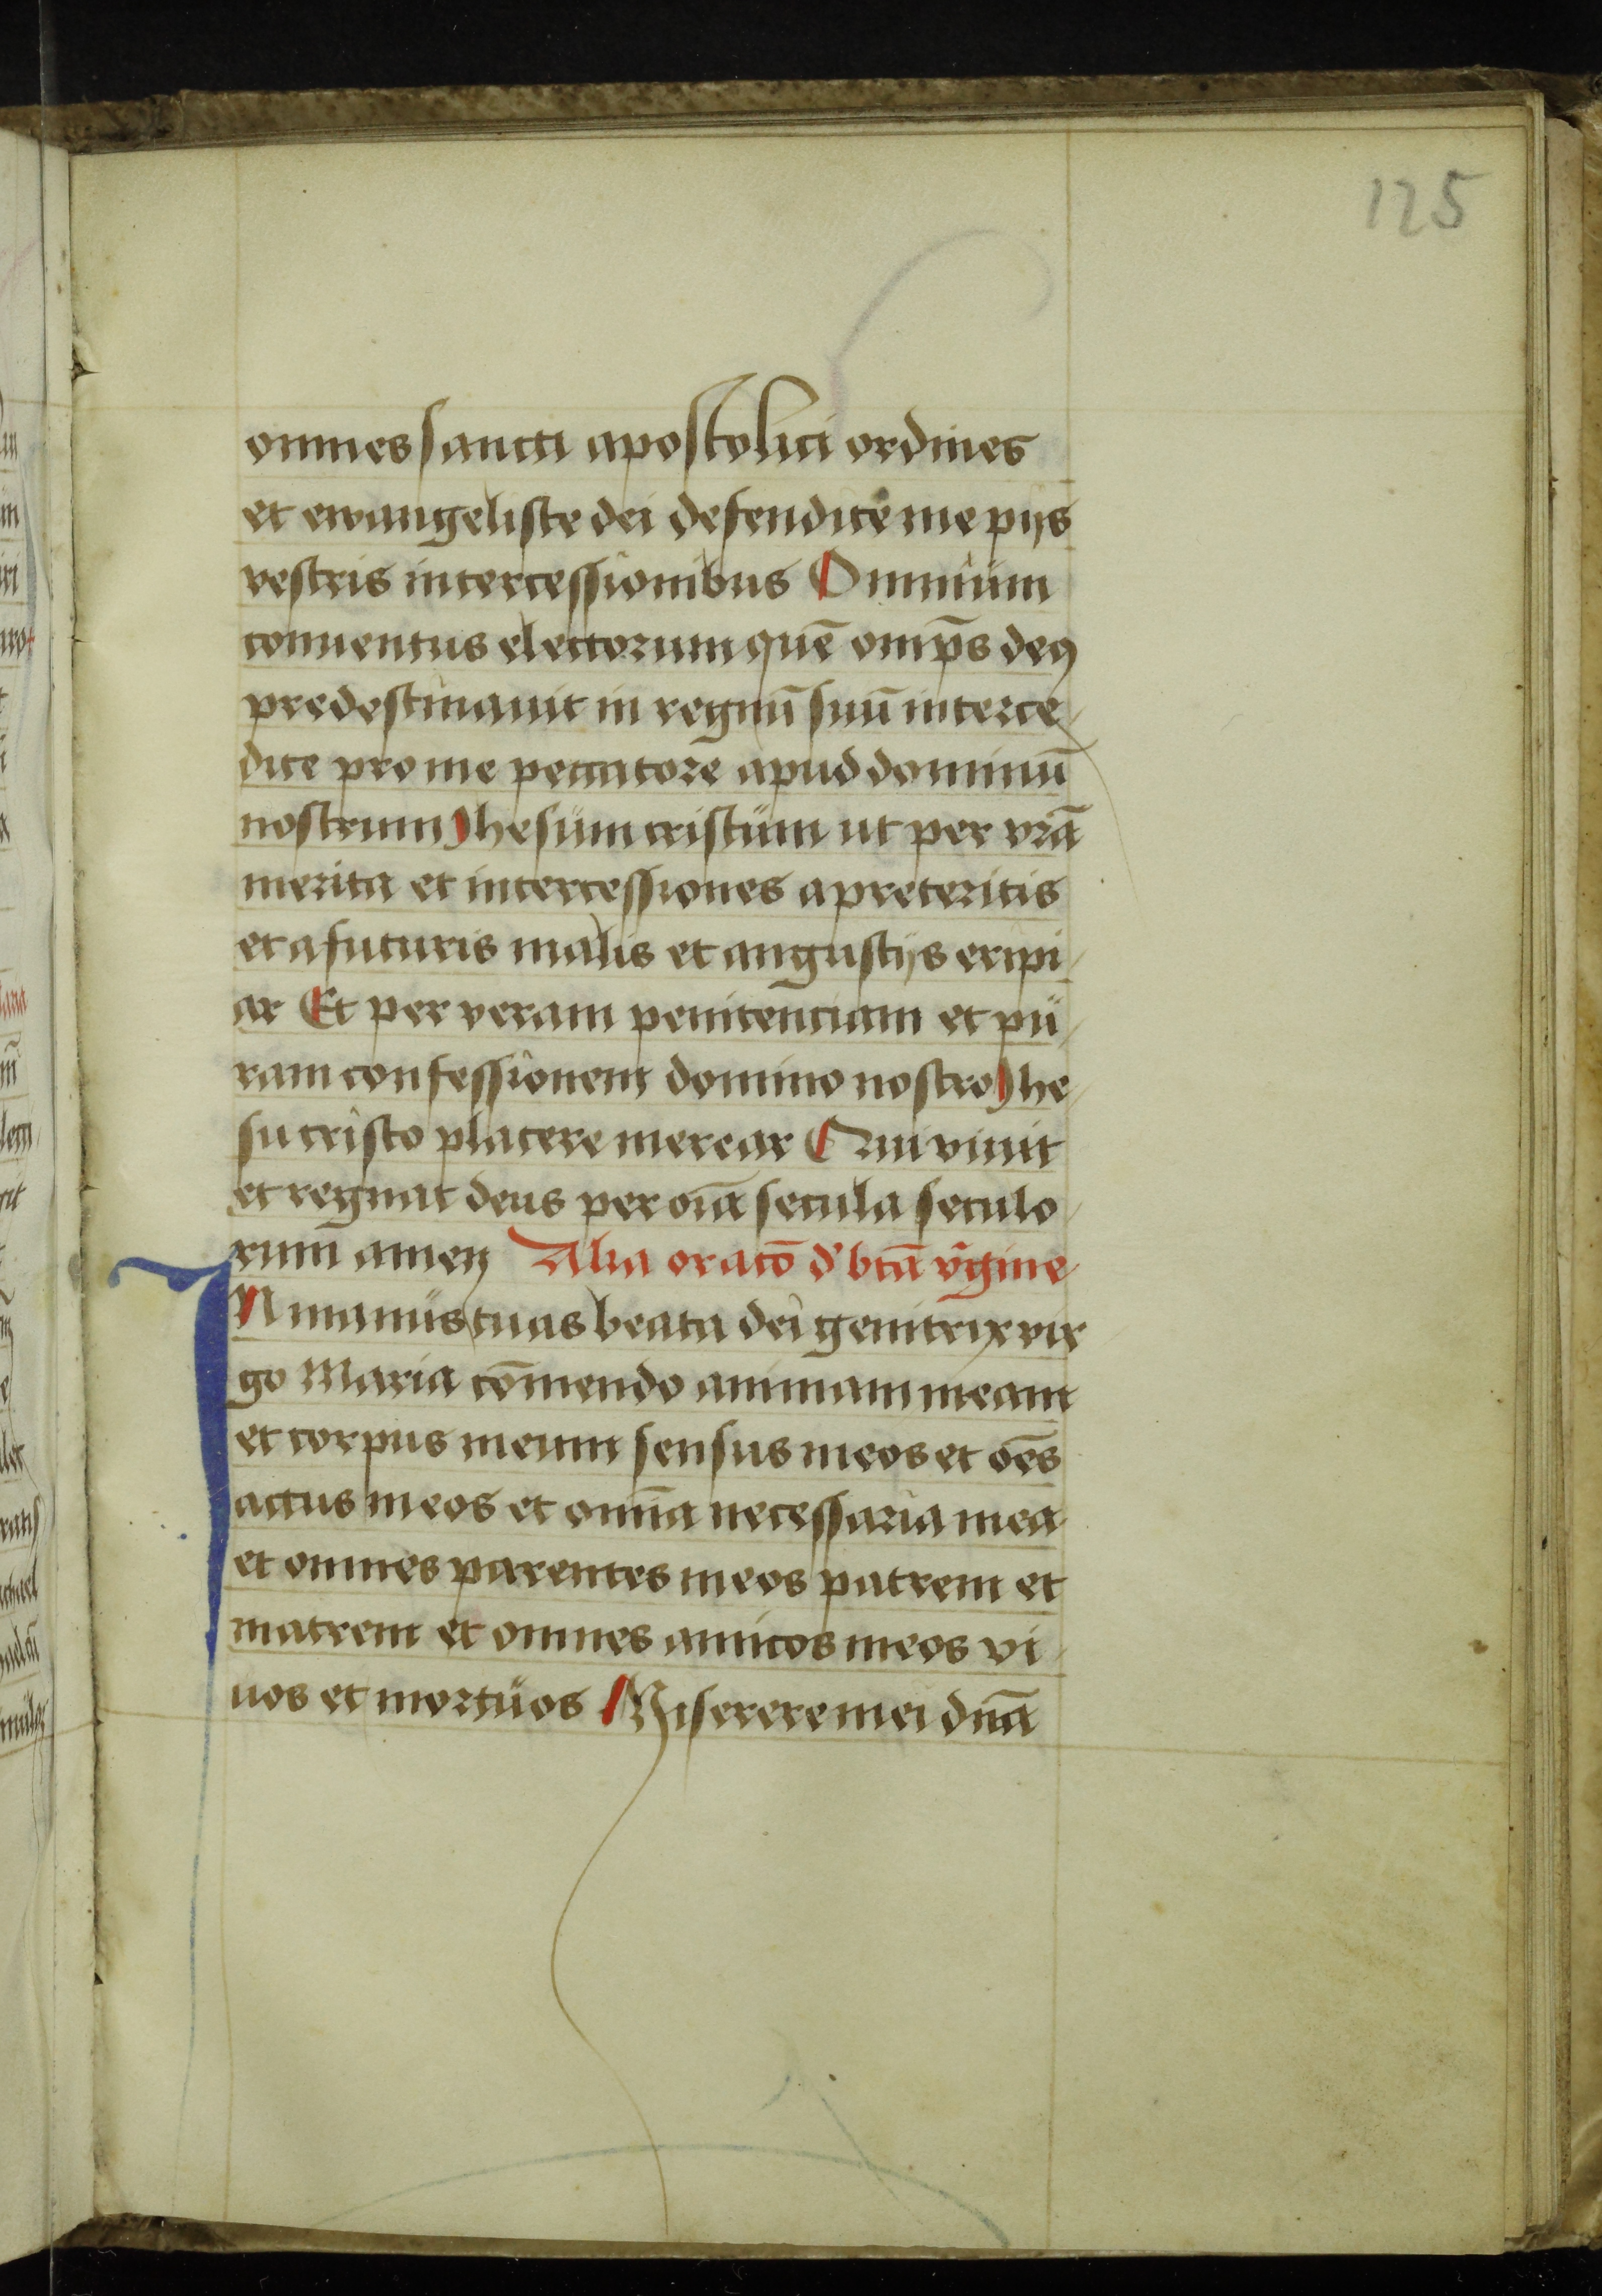 125
omnes sancti apostolici ordines
et ewangeliste dei defendite me pijs
vestris intercessionibus Omnium
conuentus electorum quē omps̄ deꝰ
predestinauit in regnū suū interce
dite pro me peccatore apud dominū
nostrum Jhesum cristum ut per vrā
merita et intercessiones a preteritis
et a futuris malis et angustijs eripi
ar Et per veram penitenciam et pu
ram confessionem domino nostro Jhe
su cristo placere merear Qui viuit
et regnat deus per oīa secula seculo
rum amen Alia oracō d' btā v̄gine
IN manus tuas beata dei genitrix vir
go Maria cōmendo animam meam
et corpus meum sensus meos et oēs
actus meos et omīa necessaria mea
et omnes parentes meos patrem et
matrem et omnes amicos meos vi
uos et mortuos Miserere mei dnā